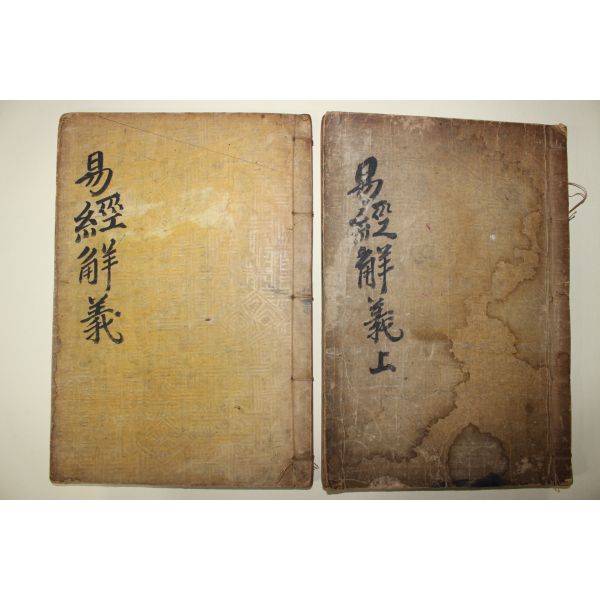 易經觧義
易經觧義上